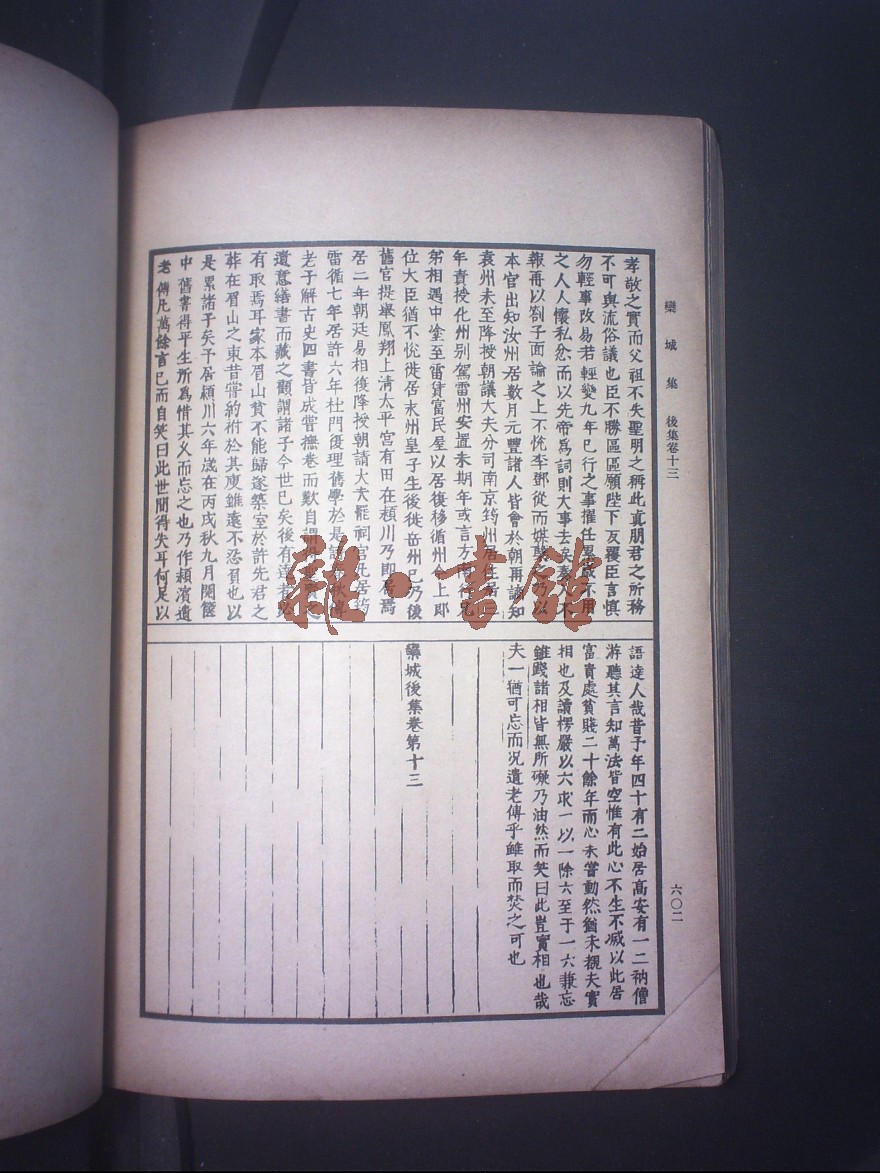 欒城集 後集卷十三
六〇二
孝敬之實而父祖不失聖明之稱此真朋君之所務
不可與流俗議也臣不勝區區願陛下反覆臣言慎
勿輕事改易若輕變九年已行之事擢任累歲不用
之人人懷私忿而以先帝為詞則大事去矣奏入不
報再以劄子面論之上不悅李鄧從而媒糵之乃以
本官出知汝州居數月元豐諸人皆會於朝再謫知
袁州未至降授朝議大夫分司南京筠州居住居
年責授化州別駕雷州安置未期年或言方南行兄
弟相遇中塗至雷賃富民屋以居復移循州今上即
位大臣猶不悅徙居永州皇子生復徙岳州已乃復
舊官提舉鳳翔上清太平宮有田在潁川乃即居焉
居二年朝廷易相復降授朝請大夫罷祠宮凡居筠
雷循七年居許六年杜門復理舊學於是詩春秋傳
老子解古史四書皆成嘗撫卷而歎自謂得聖賢之
遺意繕書而藏之顧謂諸子今世已矣後有達者必
有取焉耳家本眉山貧不能歸遂築室於許先君之
葬在眉山之東昔嘗約祔於其庾雖遠不忍負也以
是累諸子矣予居潁川六年歲在丙戌秋九月閱篋
中舊書得平生所為惜其久而忘之也乃作潁濱遺
老傳凡萬餘言已而自笑曰此世間得失耳何足以
語達人哉昔予年四十有二始居高安有一二衲僧
游聽其言知萬法皆空惟有此心不生不滅以此居
富貴處貧賤二十餘年而心未嘗動然猶未覩夫實
相也及讀楞嚴以六求一以一除六至于一六兼忘
雖踐諸相皆無所礙乃油然而笑曰此豈實相也哉
夫一猶可忘而況遺老傳乎雖取而焚之可也
欒城後集卷第十三
雜·書館